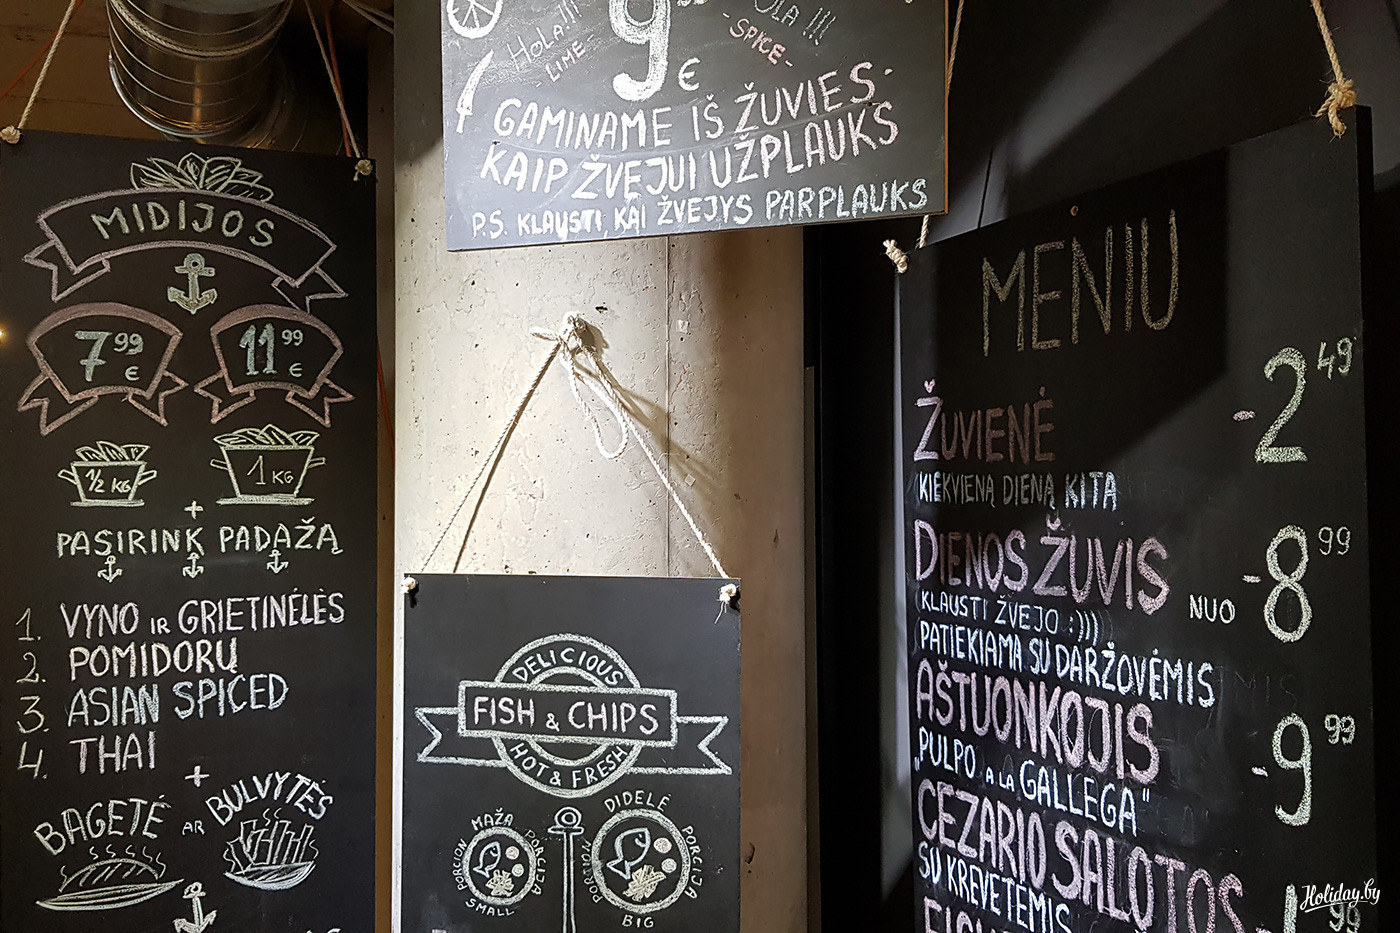 MIDIJOS
7 99 €
11 99 €
1/2 KG
1 KG
+
PASIRINK PADAŽĄ
1. VYNO IR GRIETINĖLĖS
2. POMIDORŲ
3. ASIAN SPICED
4. THAI
+
BAGETĖ AR BULVYTĖS
9
€
HOLA!!!
LIME
OLA !!!
-SPICE-
GAMINAME IŠ ŽUVIES.
KAIP ŽVEJUI UŽPLAUKS
P.S. KLAUSTI, KAI ŽVEJYS PARPLAUKS
DELICIOUS
FISH & CHIPS
HOT & FRESH
MAŽA PORCIJA
PORCION SMALL
DIDELĖ PORCIJA
PORTION BIG
MENIU
ŽUVIENĖ - 2 49
KIEKVIENĄ DIENĄ KITA
DIENOS ŽUVIS NUO - 8 99
(KLAUSTI ŽVEJO :))))
PATIEKIAMA SU DARŽOVĖMIS
AŠTUONKOJIS - 9 99
„PULPO A LA GALLEGA"
CEZARIO SALOTOS
SU KREVETĖMIS
99
Holiday.by